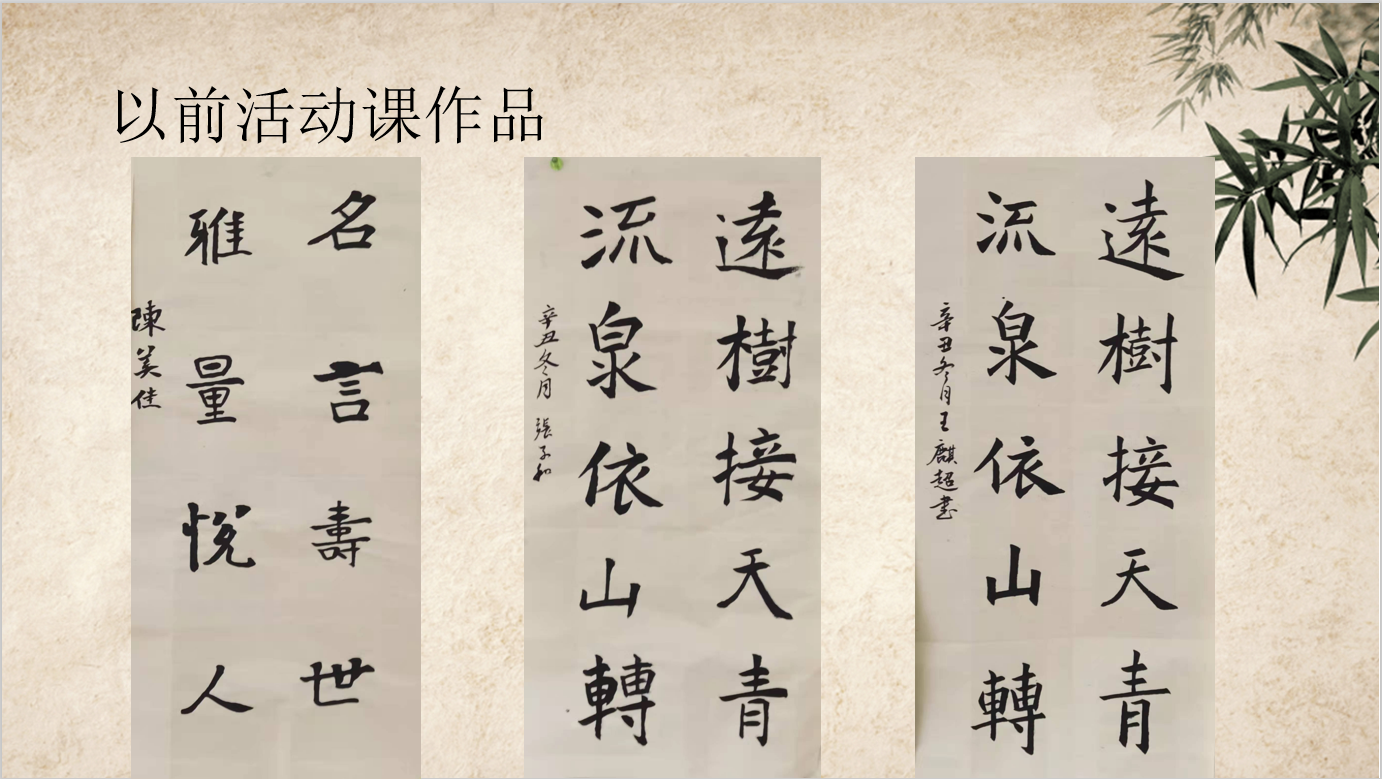 以前活动课作品
名言壽世
雅量悦人
陳美佳
遠樹接天青
流泉依山轉
辛丑冬月 張子和
遠樹接天青
流泉依山轉
辛丑冬月王麒超書